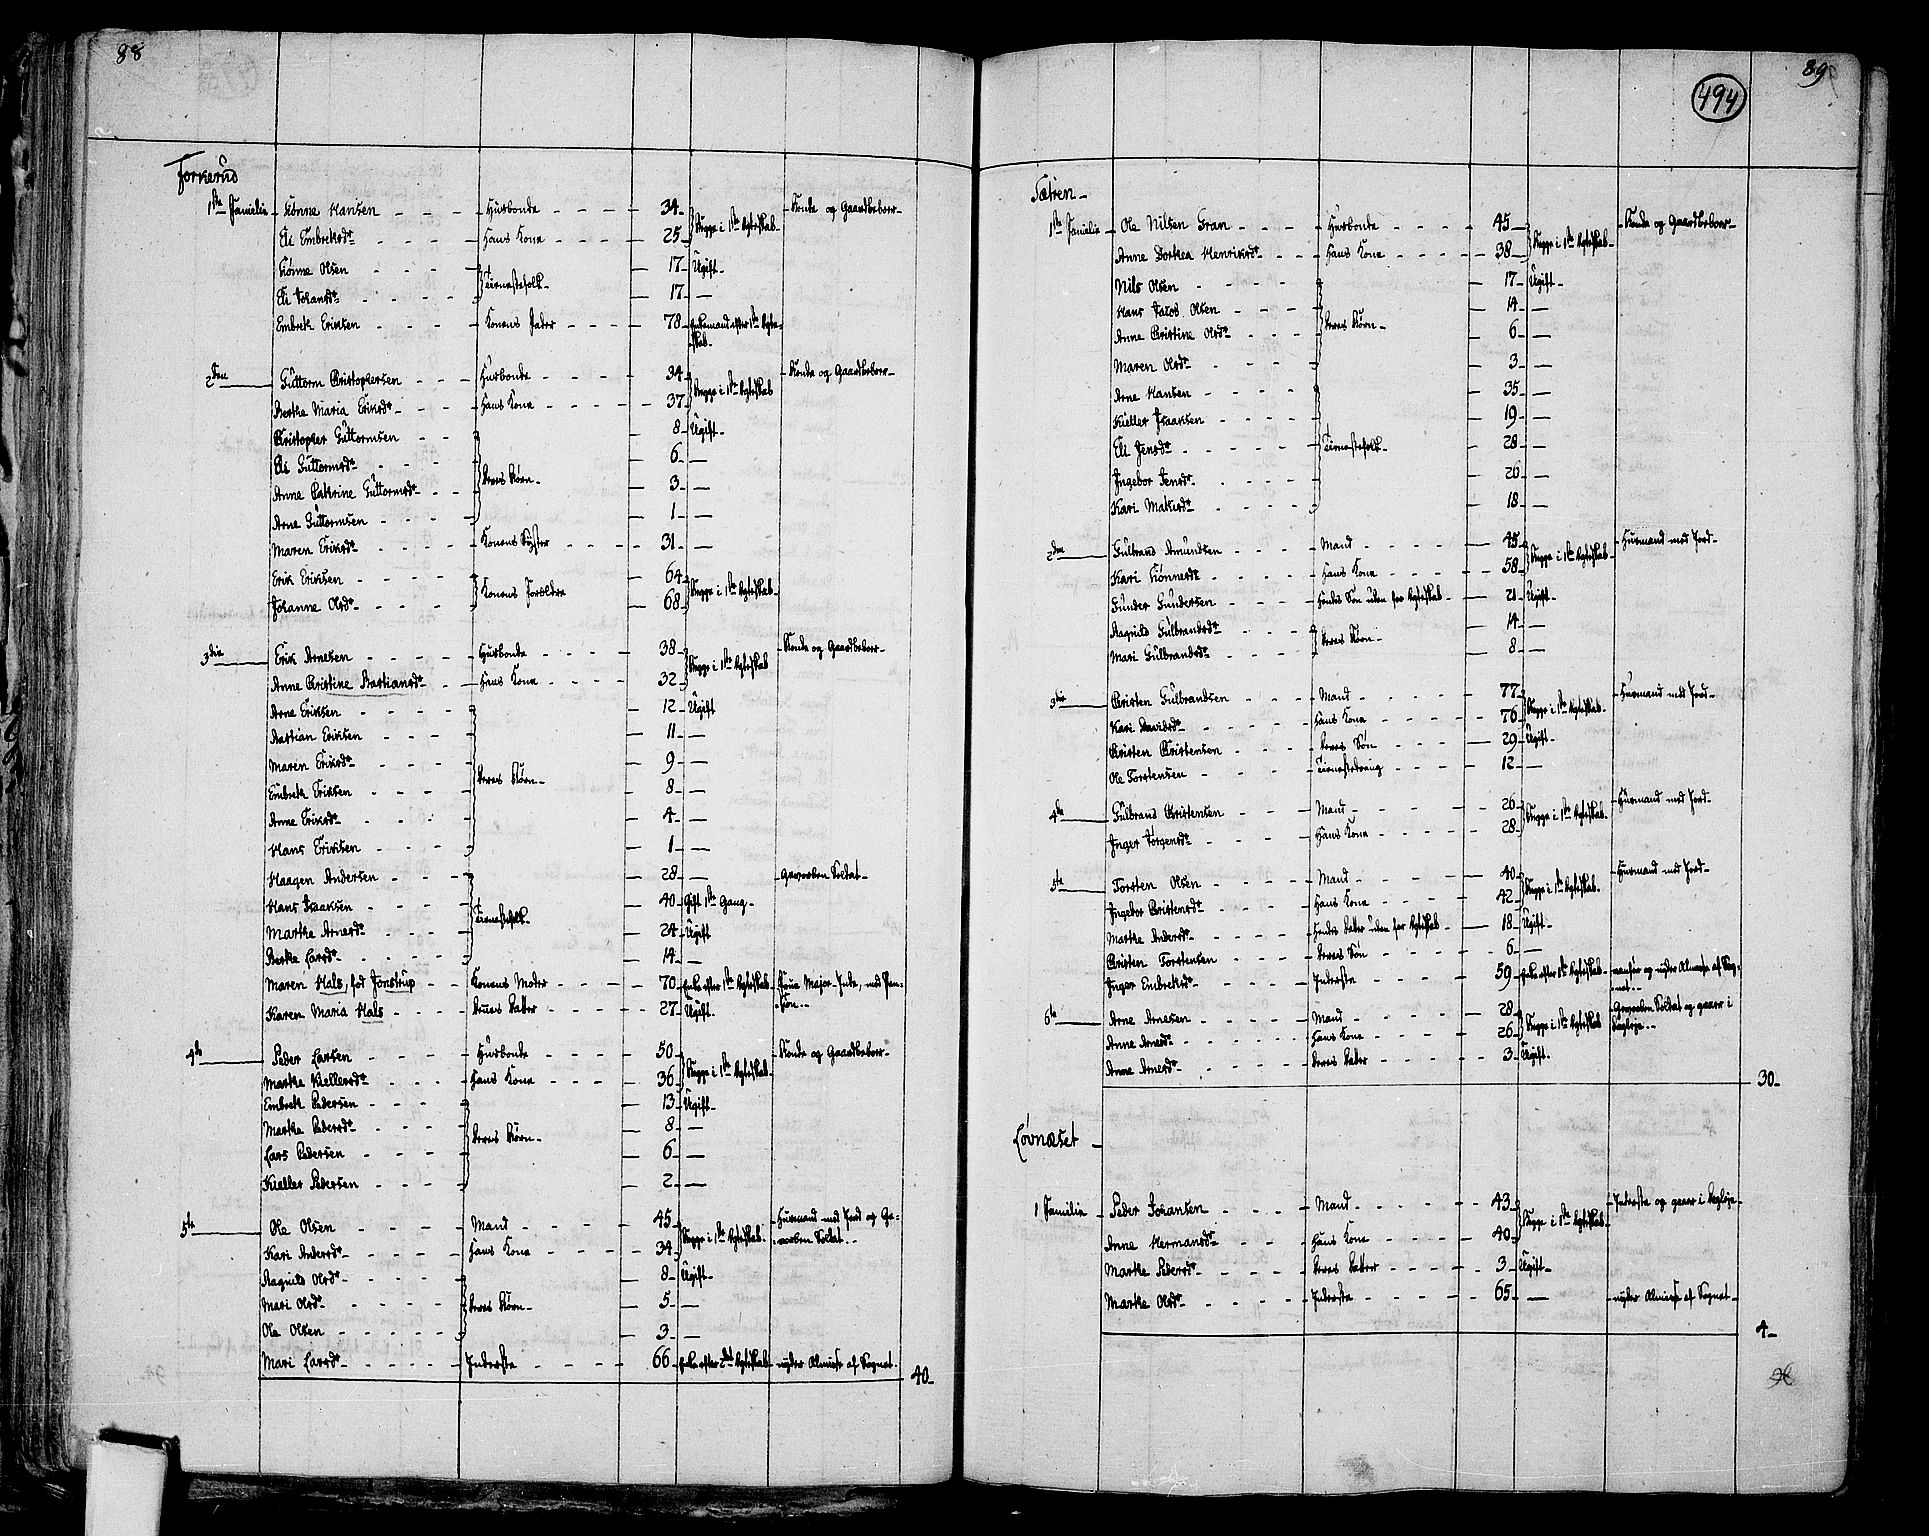 88
Torkerud
1ste Familie Tønne Hansen Husbonde 34 Begge i 1ste Ægteskab Bonde og Gaardbeboer
Eli Embreksdr Hans Kone 25
Tønne Olsen Tienestefolk 17 Ugift
Eli Johansdr 17 —
Embrek Eriksen Konens Fader 78 Enkemand efter 1ste Ægteskab
2den Guttorm Christophersen Husbonde 34 Begge i 1ste Ægteskab Bonde og Gaardbeboer
Berthe Maria Eriksdr Hans Kone 37
Christopher Guttormsen Deres Børn 8 Ugift
Eli Guttormsdr 6 —
Anne Cathrine Guttormsdr 3 —
Arne Guttormsen 1 —
Maren Eriksdr Konens Syster 31 —
Erik Eriksen Konens Forældre 64 Begge i 1ste Ægteskab
Johanne Olsdr 68
3die Erik Arnesen Husbonde 38 Begge i 1ste Ægteskab Bonde og Gaardbeboer
Anne Christine Bastiansdr Hans Kone 32
Arne Eriksen Deres Børn 12 Ugift
Bastian Eriksen 11 —
Maren Eriksdr 9 —
Embrek Eriksen 8 —
Anne Eriksdr 4 —
Hans Eriksen 1 —
Haagen Andersen Tienestefolk 28 — Gevorben Soldat
Hans Isaaksen 40 Gift 1ste Gang
Marthe Arnesdr 24 Ugift
Berthe Larsdr 14 —
Maren Hals, fød Jonstrup Konens Moder 70 Enke efter 1ste Ægteskab Frue Major-Inde, med Pension
Karen Maria Hals Fruens Datter 27 Ugift
4de Peder Larsen Husbonde 50 Begge i 1ste Ægteskab Bonde og Gaardbeboer
Marthe Kiellersdr Hans Kone 36
Embrek Pedersen Deres Børn 13 Ugift
Marthe Pedersdr 8 —
Lars Pedersen 6 —
Kieller Pedersen 2 —
5te Ole Olsen Mand 45 Begge i 1ste Ægteskab Husmand med Jord og Gevorben Soldat
Kari Andersdr Hans Kone 34
Aagnild Olsdr Deres Børn 8 Ugift
Mari Olsdr 5 —
Ole Olsen 3 —
Mari Larsdr Inderste 66 Enke efter 2det Ægteskab nyder Almisse af Sognet
40
89
494
Sætren
1ste Familie Ole Nilsen Gran Husbonde 45 Begge i 1ste Ægteskab Bonde og Gaardbeboer
Anne Dorthea Henriksdr Hans Kone 38
Nils Olsen Deres Børn 17 Ugift
Hans Jacob Olsen 14 —
Anne Christine Olsdr 6 —
Maren Olsdr 3 —
Arne Hansen Tienestefolk 35 —
Kieller Isaaksen 19 —
Eli Jensdr 28 —
Ingebor Jensdr 26 —
Kari Mathisdr 18 —
2den Gulbrand Amundsen Mand 45 Begge i 1ste Ægteskab Husmand med Jord
Kari Tønnesdr Hans Kone 58
Gunder Gundersen Hendes Søn uden for Ægteskab 21 Ugift
Aagnild Gulbrandsdr Deres Børn 14 —
Mari Gulbrandsdr 8 —
3die Christen Gulbrandsen Mand 77 Begge i 1ste Ægteskab Husmand med Jord
Kari Davidsdr Hans Kone 76
Christen Christensen Deres Søn 29 Ugift
Ole Torstensen Tienestedreng 12 —
4de Gulbrand Christensen Mand 26 Begge i 1ste Ægteskab Husmand med Jord
Inger Jørgensdr Hans Kone 28
5te Torsten Olsen Mand 40 Begge i 1ste Ægteskab Husmand med Jord
Ingebor Christensdr Hans Kone 42
Marthe Andersdr Hendes Datter uden for Ægteskab 18 Ugift
Christen Torstensen Deres Søn 6 —
Inger Embreksdr Inderste 59 Enke efter 1ste Ægteskab vanfør og nyder Almisse af Sognet
6te Arne Arnesen Mand 28 Begge i 1ste Ægteskab Gevorben Soldat og gaaer i Dagleje
Anne Arnesdr Hans Kone 26
Anne Arnesdr Deres Datter 3 Ugift
30
Løvnæset
1 Familie Peder Johansen Mand 43 Begge i 1ste Ægteskab Inderste og gaaer i Dagleje
Anne Hermansdr Hans Kone 40
Marthe Pedersdr Deres Datter 3 Ugift
Marthe Olsdr Inderste 65 — nyder Almisse af Sognet
4